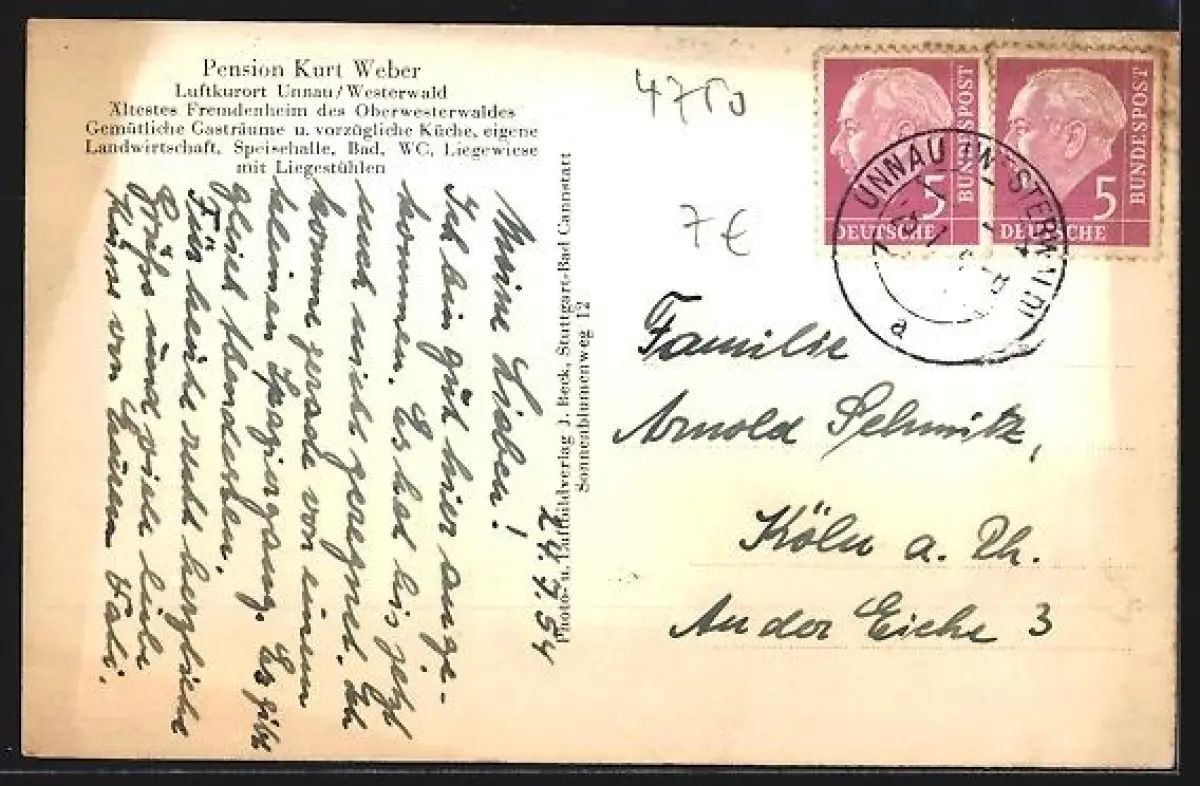 Pension Kurt Weber
Luftkurort Unnau/Westerwald
Ältestes Fremdenheim des Oberwesterwaldes
Gemütliche Gasträume u. vorzügliche Küche, eigene
Landwirtschaft, Speisehalle, Bad, WC, Liegewiese
mit Liegestühlen
24.7.54
Meine Lieben!
Ich bin gut hier ange-
kommen. Es hat bis jetzt
noch nicht geregnet. Ich
komme gerade von einem
kleinen Spaziergang. Es gibt
gleich Abendessen.
Für heute recht herzliche
Grüße und viele liebe
Küsse von Eurem
Photo- u. Luftbildverlag J. Beck, Stuttgart-Bad Cannstatt
Sonnenblumenweg 12
4750
7€
5
DEUTSCHE
BUNDESPOST
5
DEUTSCHE
BUNDESPOST
UNNAU (WESTERWALD)
a
Familie
Arnold Schmitz,
Köln a. Rh.
An der Eiche 3